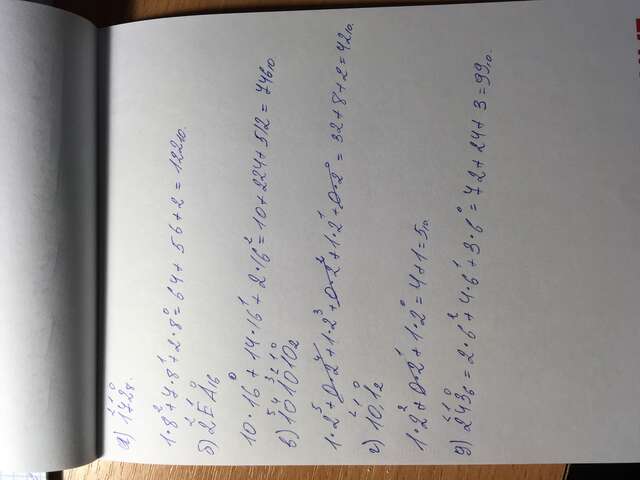 2 1 0
а) 172₈.
1·8²+7·8¹+2·8⁰=64+56+2=122₁₀.
2 1 0
б) 2EA₁₆
10·16⁰+14·16¹+2·16²=10+224+512=746₁₀.
5 4 3 2 1 0
в) 101010₂
1·2⁵+0·2⁴+1·2³+0·2²+1·2¹+0·2⁰=32+8+2=42₁₀.
2 1 0
г) 10,1₂
1·2²+0·2¹+1·2⁰=4+1=5₁₀
2 1 0
д) 243₆=2·6²+4·6¹+3·6⁰=72+24+3=99₁₀.